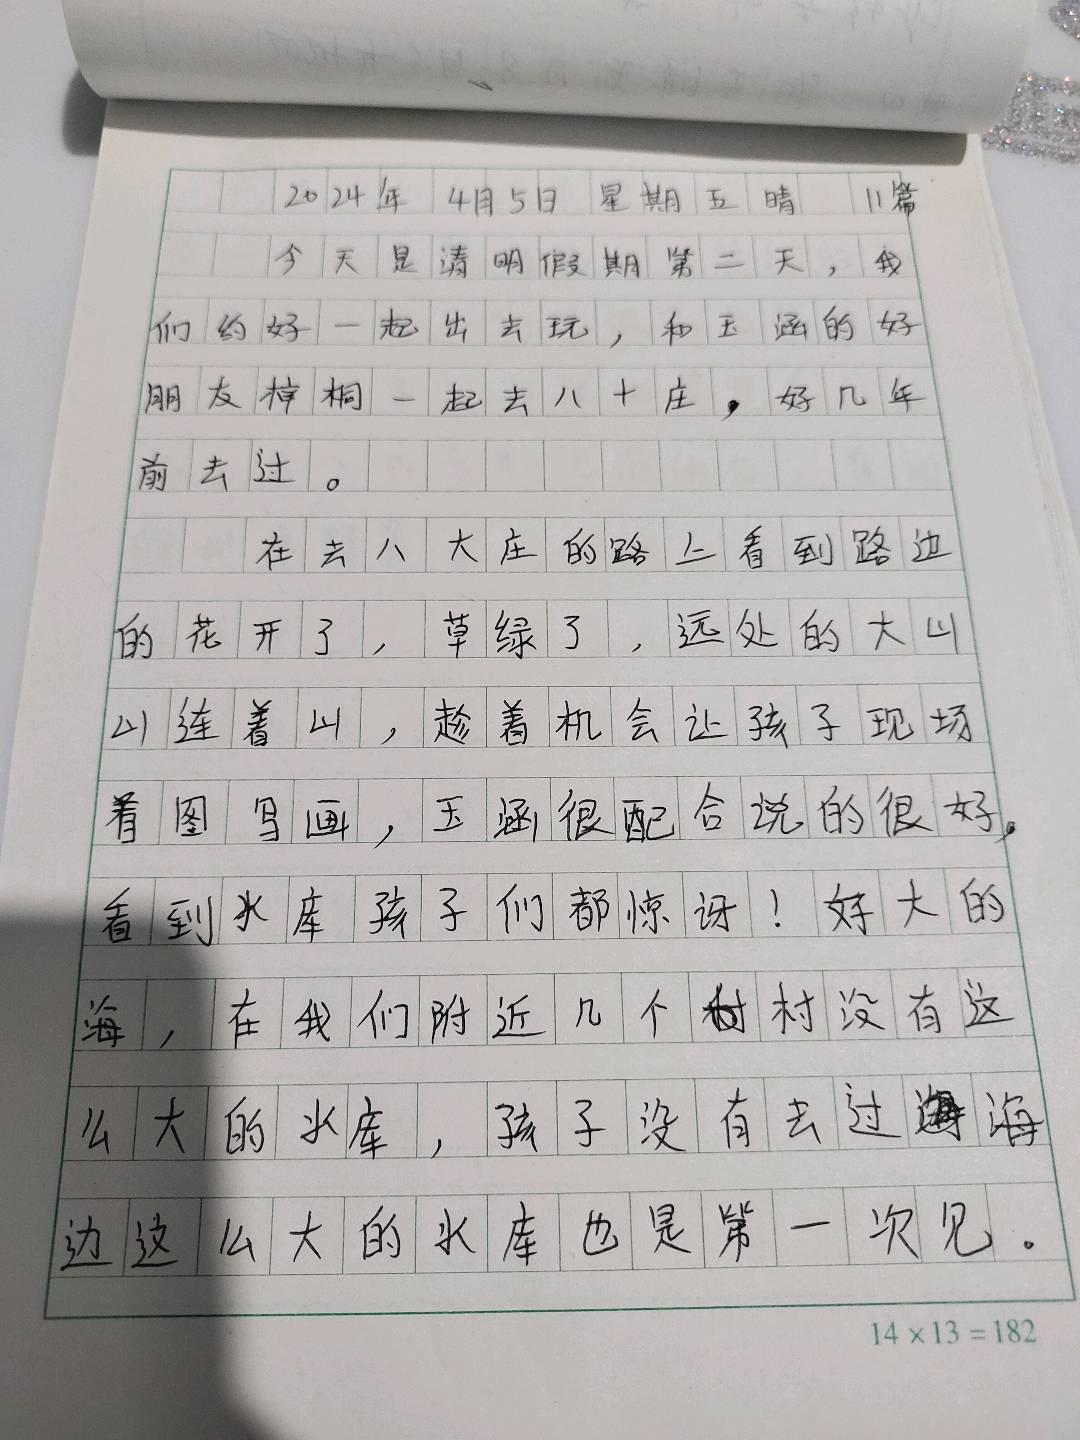 2024年 4月5日 星期五晴 11篇
今天是清明假期第二天，我
们约好一起出去玩，和玉涵的好
朋友梓桐一起去八十庄，好几年
前去过。
在去八大庄的路上看到路边
的花开了，草绿了，远处的大山
山连着山，趁着机会让孩子现场
着图写画，玉涵很配合说的很好。
看到水库孩子们都惊讶！好大的
海，在我们附近几个村没有这
么大的水库，孩子没有去过海
边这么大的水库也是第一次见。
14×13=182